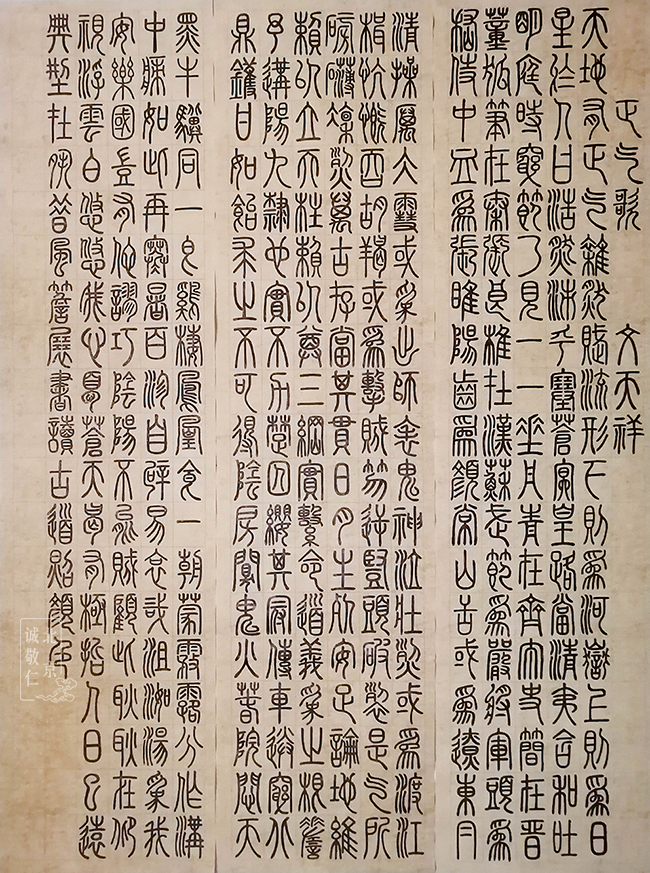 正气歌 文天祥
天地有正气雜然賦流形下則為河嶽上則為日
星於人曰浩然沛乎塞蒼冥皇路當清夷含和吐
明庭時窮節乃見一一垂丹青在齊太史簡在晉
董狐筆在秦張良椎在漢蘇武節為嚴將軍頭為
嵇侍中血為張睢陽齒為顏常山舌或為遼東帽
清操厲冰雪或為出師表鬼神泣壯烈或為渡江
楫慷慨吞胡羯或為擊賊笏逆豎頭破裂是气所
磅礴凜烈萬古存當其貫日月生死安足論地維
賴以立天柱賴以尊三綱實繫命道義為之根嗟
予遘陽九隸也實不力楚囚纓其冠傳車送窮北
鼎鑊甘如飴求之不可得陰房闃鬼火春院閟天
黑牛驥同一皂雞棲鳳凰食一朝蒙霧露分作溝
中瘠如此再寒暑百沴自辟易哀哉沮洳場為我
安樂國豈有他謬巧陰陽不能賊顧此耿耿在仰
視浮雲白悠悠我心悲蒼天曷有極哲人日已遠
典型在夙昔風簷展書讀古道照顏色
北京
诚敬仁